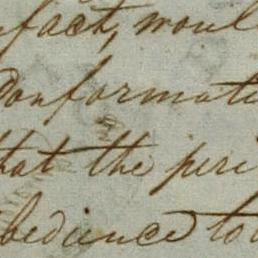 fact, woul
Conformati
that the peri
bedience to